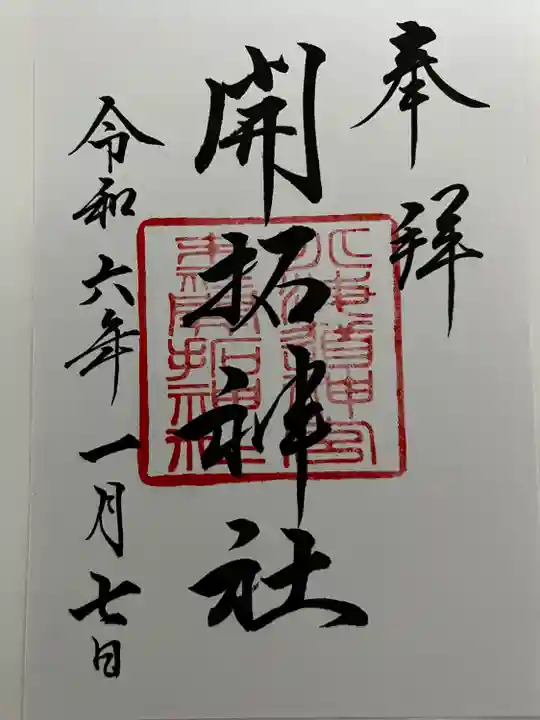 奉拝
開拓神社
令和六年一月七日
北海道神宮
末社開拓神社